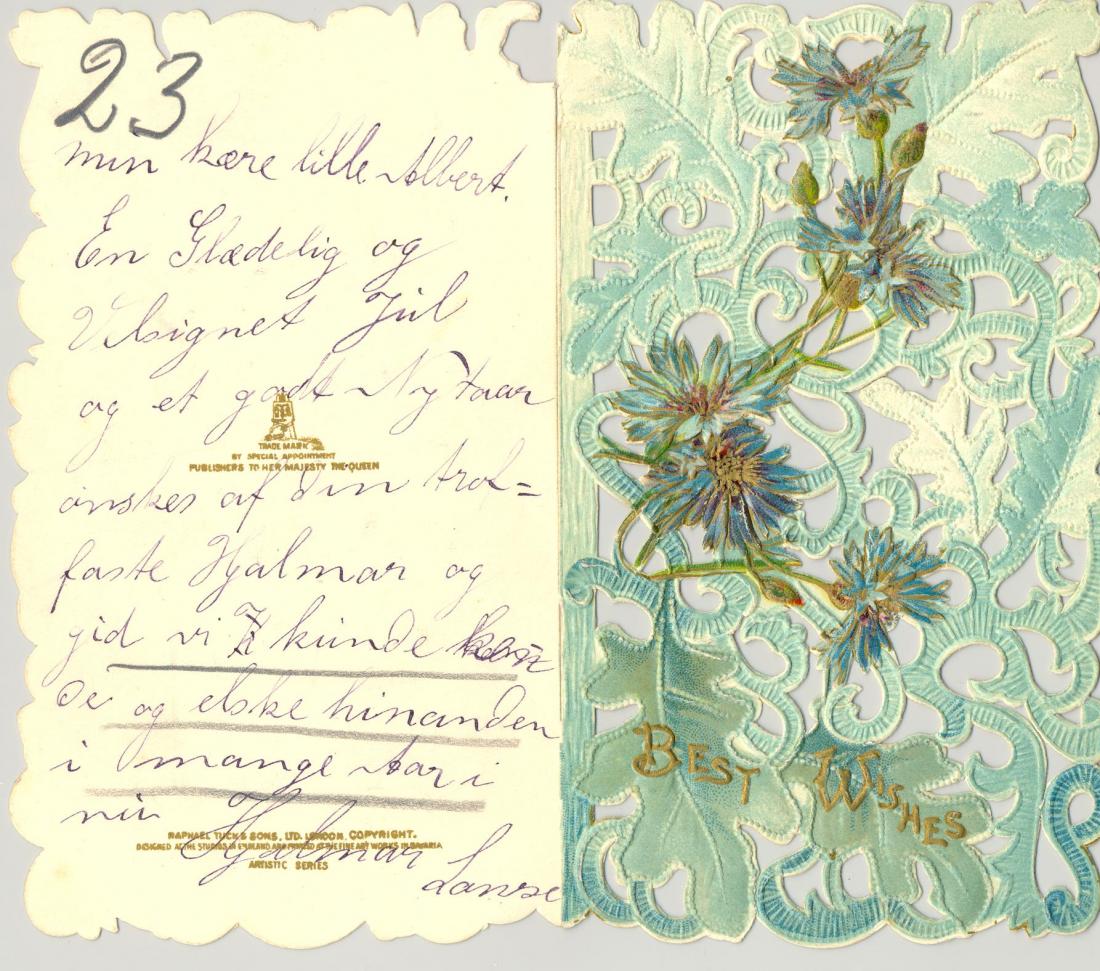 23
min kære lille Albert.
En Glædelig og
Velsignet Jul
og et godt Nytaar
TRADE MARK
BY SPECIAL APPOINTMENT
PUBLISHERS TO HER MAJESTY THE QUEEN
ønskes af din trol=
faste Hjalmar og
gid vi kunde
de og elske hinanden
i mange Aar i
RAPHAEL TUCK & SONS, LTD. LONDON. COPYRIGHT.
DESIGNED AT THE STUDIOS IN ENGLAND AND PRINTED AT THE FINE ART WORKS IN BAVARIA
ARTISTIC SERIES
Hjalmar
BEST WISHES